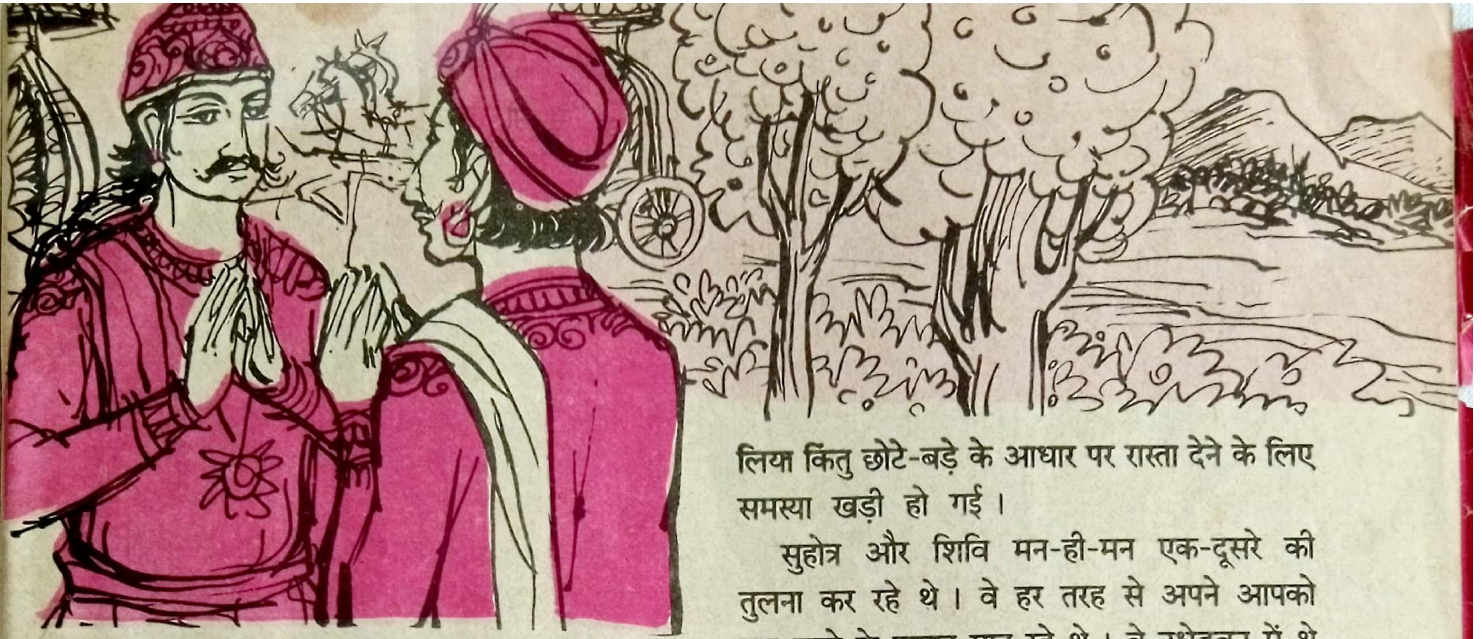 लिया किंतु छोटे-बड़े के आधार पर रास्ता देने के लिए
समस्या खड़ी हो गई ।
सुहोत्र और शिवि मन-ही-मन एक-दूसरे की
तुलना कर रहे थे । वे हर तरह से अपने आपको